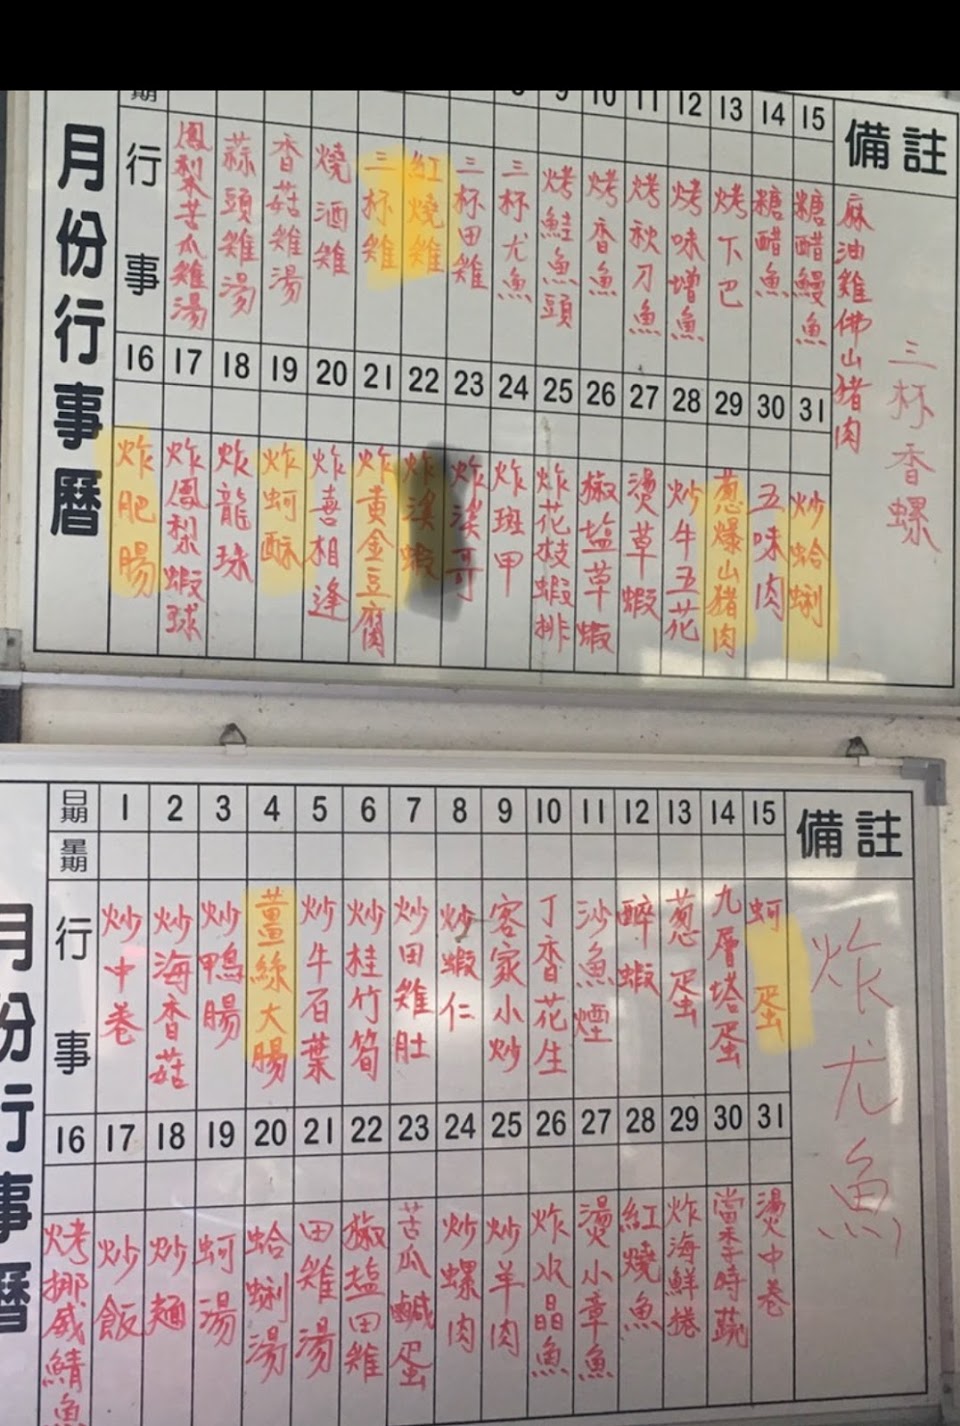 月份行事曆
期 8 9 10 11 12 13 14 15 備註
行事
鳳梨苦瓜雞湯
蒜頭雞湯
香菇雞湯
燒酒雞
三杯雞
紅燒雞
三杯田雞
三杯尤魚
烤鮭魚頭
烤香魚
烤秋刀魚
烤味增魚
烤下巴
糖醋魚
糖醋鰻魚
麻油雞佛山豬肉
三杯香螺
16 17 18 19 20 21 22 23 24 25 26 27 28 29 30 31
炸肥腸
炸鳳梨蝦球
炸龍珠
炸蚵酥
炸喜相逢
炸黃金豆腐
炸溪蝦
炸溪哥
炸斑甲
炸花枝蝦排
椒塩草蝦
燙草蝦
炒牛五花
蔥爆山豬肉
五味肉
炒蛤蜊
月份行事曆
日期 1 2 3 4 5 6 7 8 9 10 11 12 13 14 15 備註
星期
行事
炒中卷
炒海香菇
炒鴨腸
薑絲大腸
炒牛百葉
炒桂竹筍
炒田雞肚
炒蝦仁
客家小炒
丁香花生
沙魚煙
醉蝦
蔥蛋
九層塔蛋
蚵蛋
炸尤魚
16 17 18 19 20 21 22 23 24 25 26 27 28 29 30 31
烤挪威鯖魚
炒飯
炒麵
蚵湯
蛤蜊湯
田雞湯
椒塩田雞
苦瓜鹹蛋
炒螺肉
炒羊肉
炸水晶魚
燙小章魚
紅燒魚
炸海鮮捲
當季時蔬
燙中卷